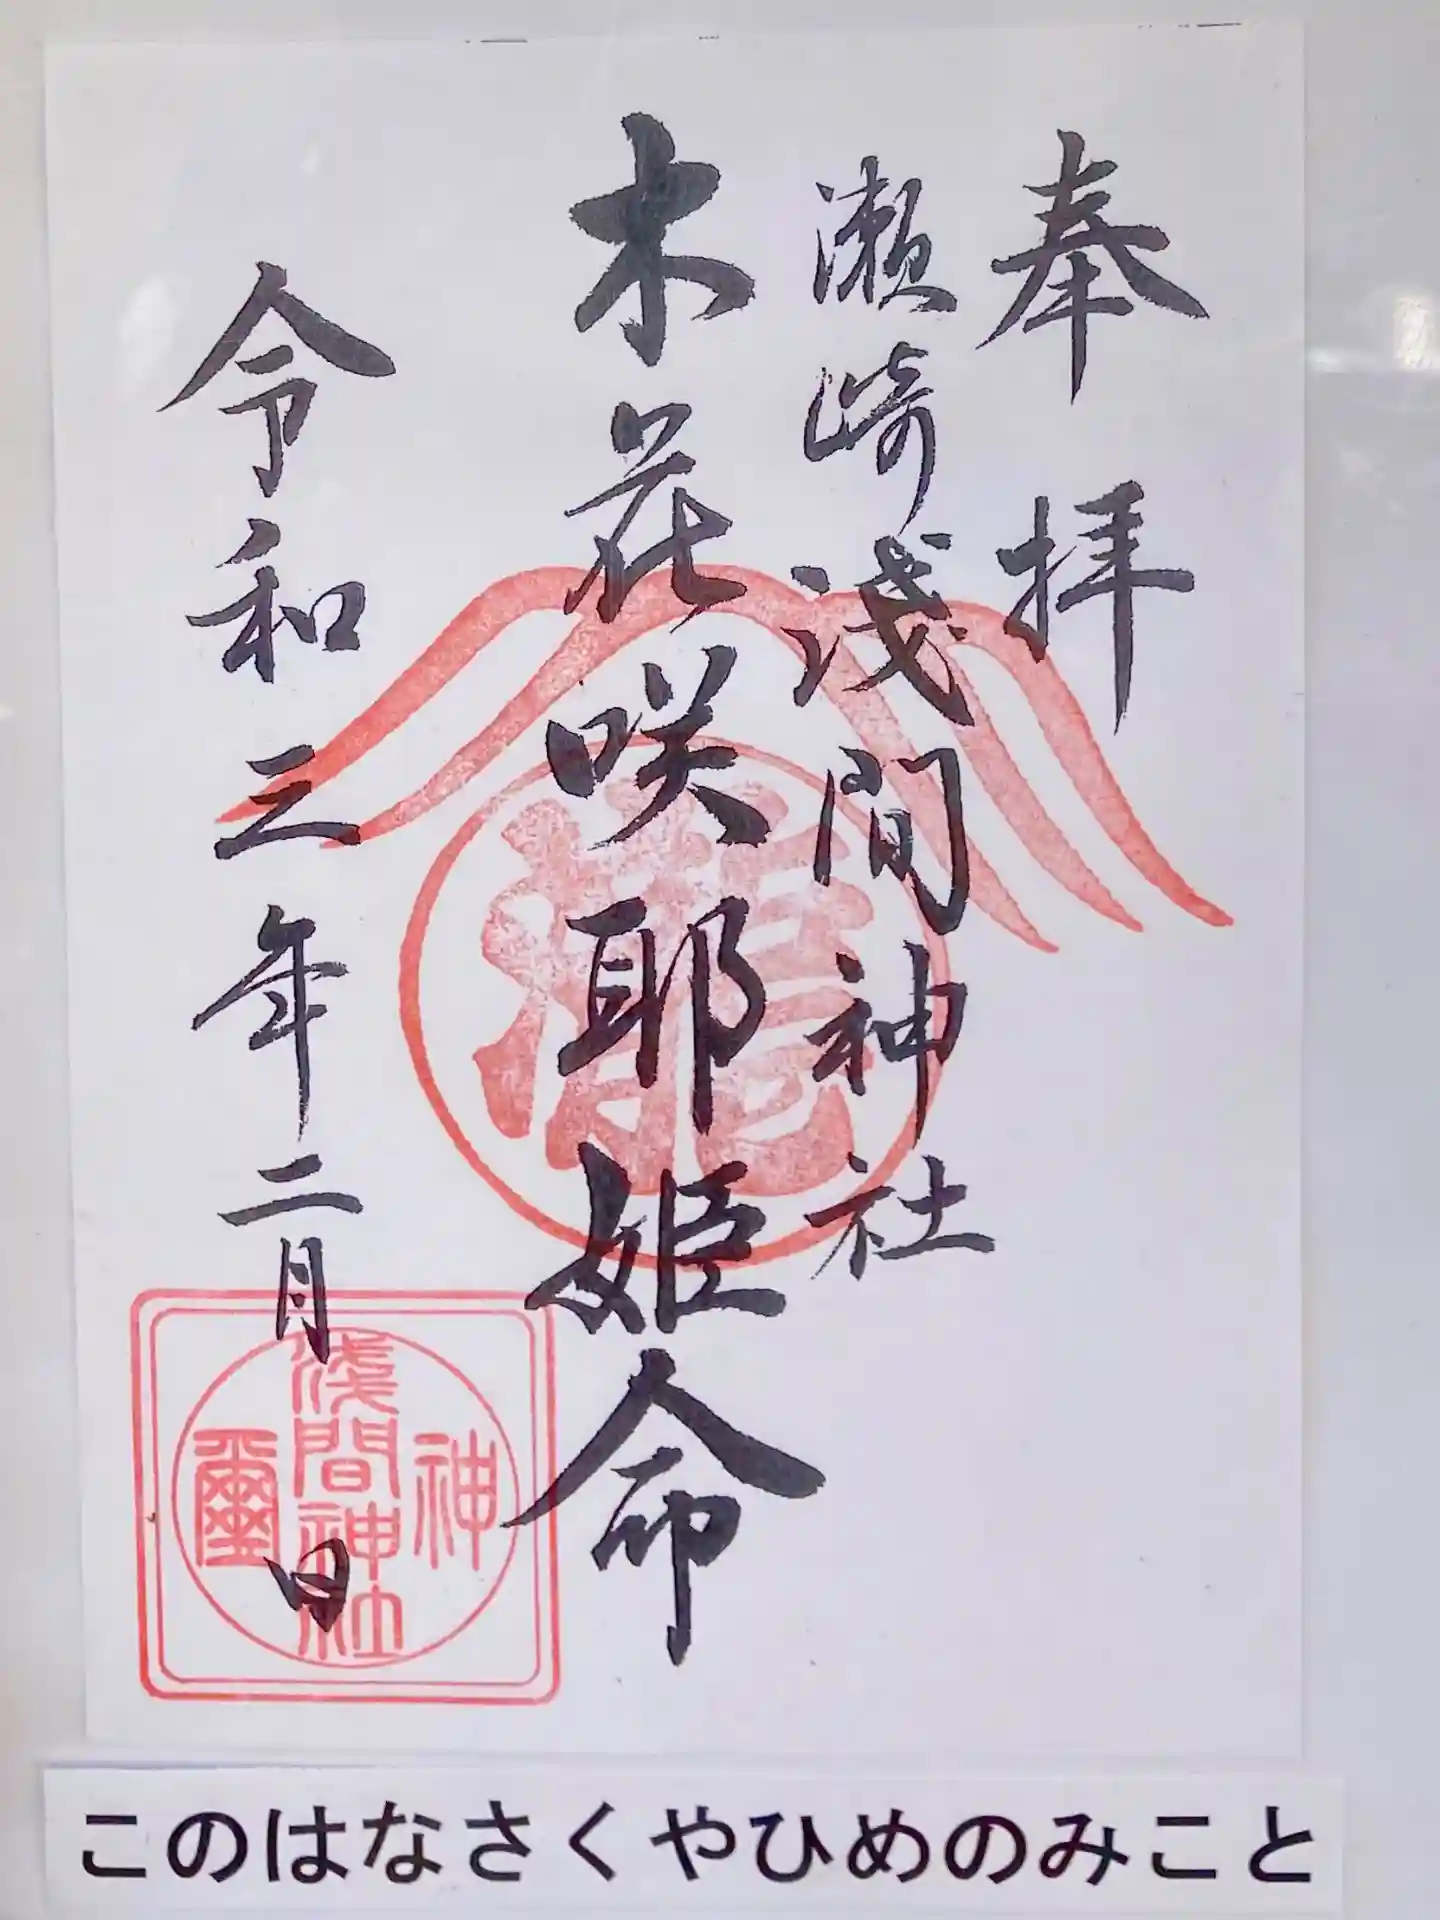 奉拝
瀬崎浅間神社
木花咲耶姫命
令和三年二月 日
神
浅間神社
璽
このはなさくやひめのみこと